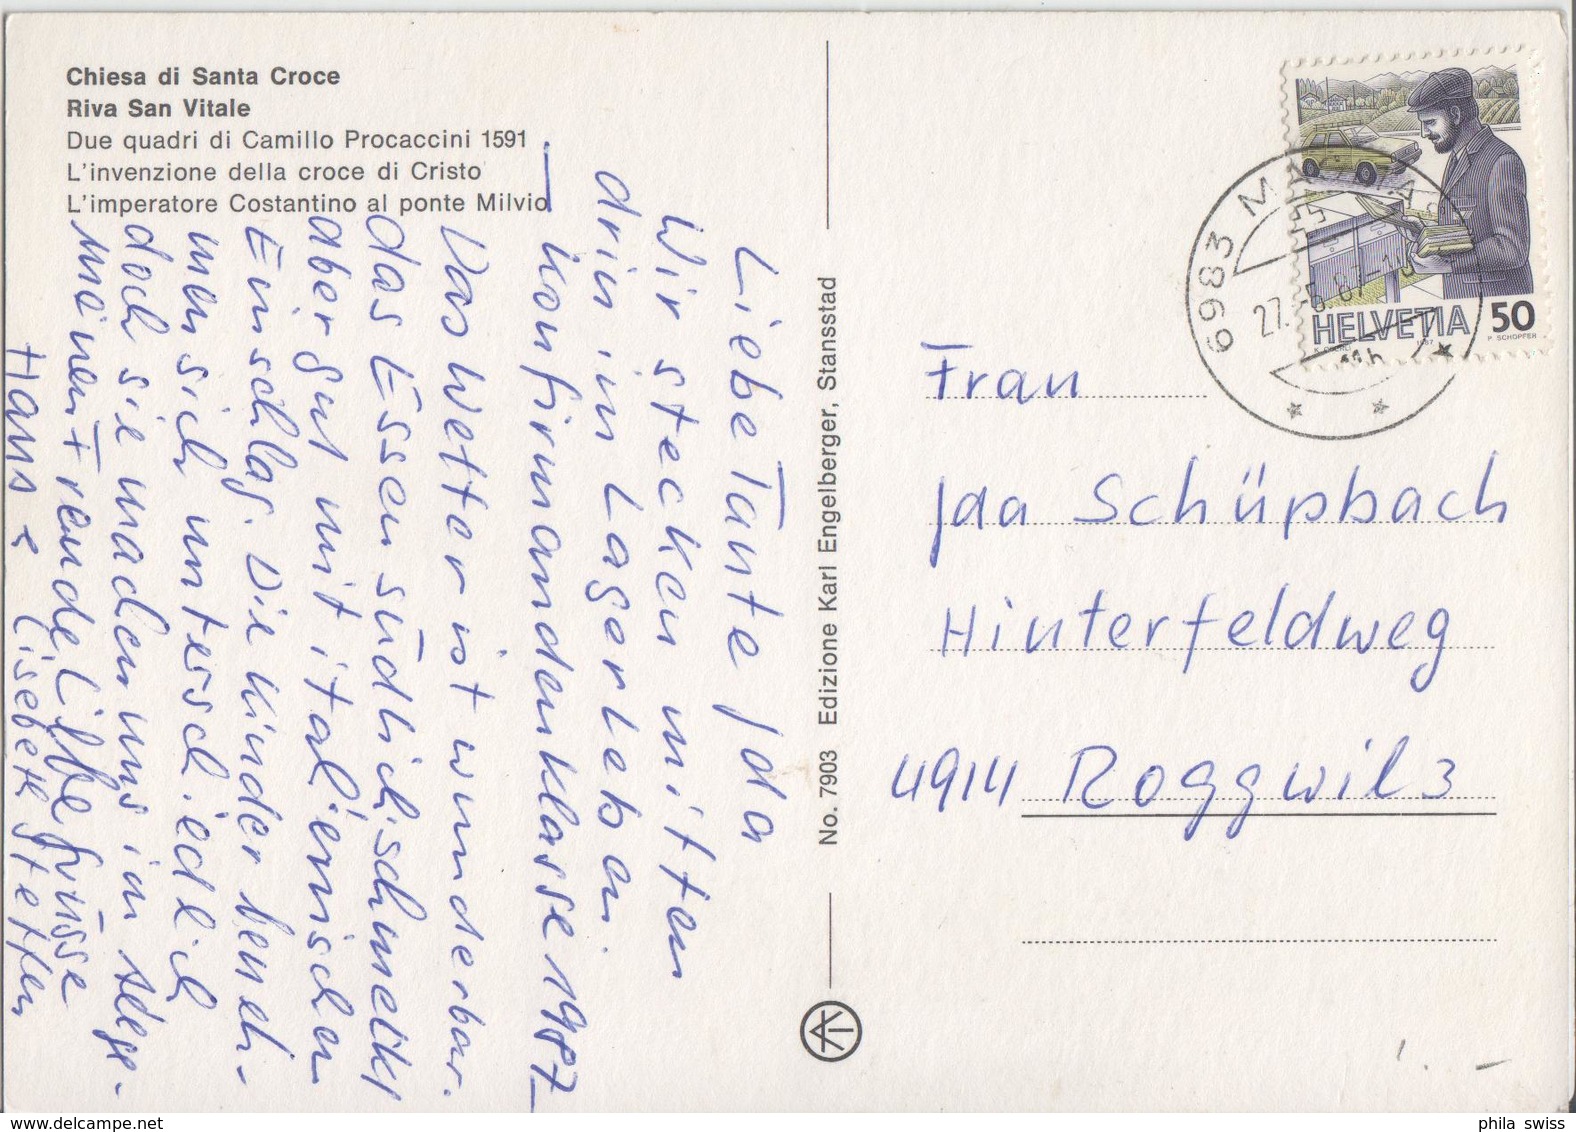 Chiesa di Santa Croce
Riva San Vitale
Due quadri di Camillo Procaccini 1591
L'invenzione della croce di Cristo
L'imperatore Costantino al ponte Milvio
Liebe Tante Ida
Wir stecken mitten
drin im Lagerleben.
Konfirmandenklasse 1987
Das Wetter ist wunderbar.
das Essen südlich, schmeckt
aber gut mit italienischen
Einschlag. Die Kinder beneh-
men sich unterschiedlich
doch sie machen uns im
meinen Freude Liebe Grüsse
Hans & Lisebeth Stetten
No. 7903 Edizione Karl Engelberger, Stansstad
6983 M
27. 5. 87-10
HELVETIA 50
1987
P. SCHOPFER
Frau
Ida Schüpbach
Hinterfeldweg
4914 Roggwil 3
phila swiss
www.delcampe.net